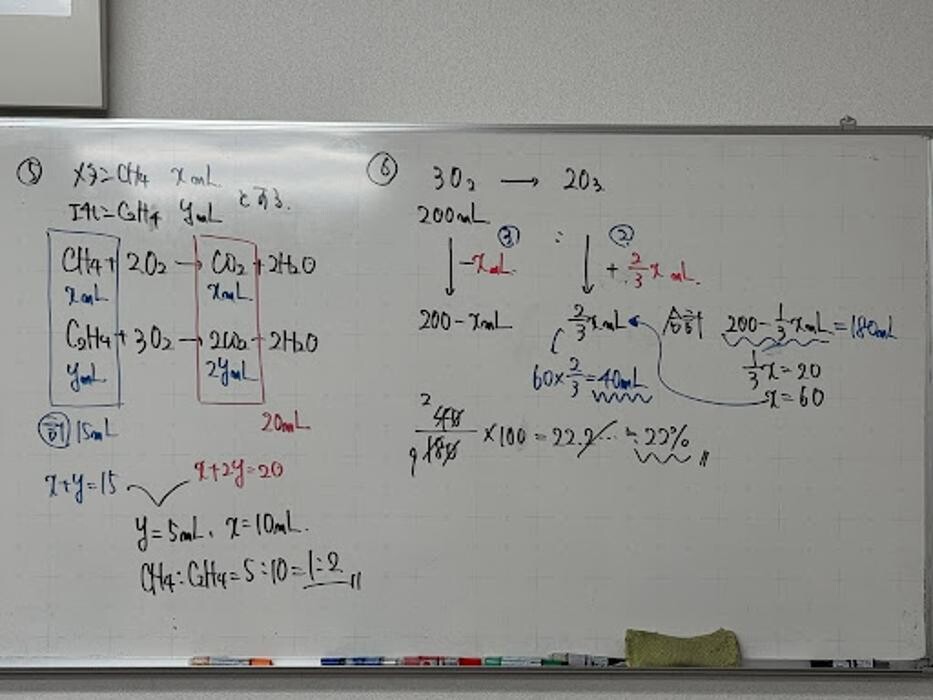 ⑤ メタン=CH4 xmL
エチレン=C2H4 ymL とする.
CH4 + 2O2 → CO2 + 2H2O
xmL xmL
C2H4 + 3O2 → 2CO2 + 2H2O
ymL 2ymL
計 15mL 20mL
x+y=15 x+2y=20
y=5mL, x=10mL.
CH4:C2H4=5:10=1:2 〃
⑥ 3O2 → 2O3
200mL
③ : ②
-xmL. + 2/3 x mL.
200-xmL 2/3 xmL 合計 200-1/3 xmL = 180mL
60×2/3=40mL 1/3 x=20
x=60
2 40
9 180 ×100=22.2… ≒22% 〃